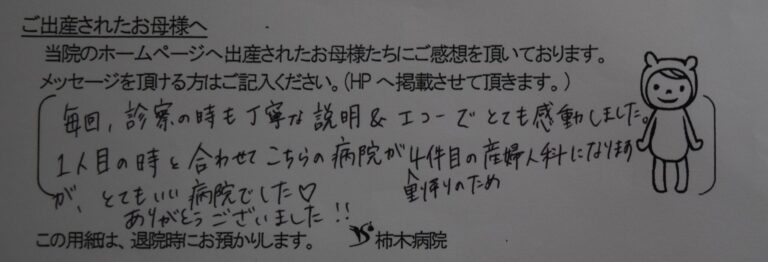 ご出産されたお母様へ
当院のホームページへ出産されたお母様たちにご感想を頂いております。
メッセージを頂ける方はご記入ください。(HPへ掲載させて頂きます。)
毎回、診察の時も丁寧な説明&エコーでとても感動しました。
1人目の時と合わせてこちらの病院が4件目の産婦人科になります
里帰りのため
が、とてもいい病院でした♡
ありがとうございました!!
この用紙は、退院時にお預かりします。 柿木病院